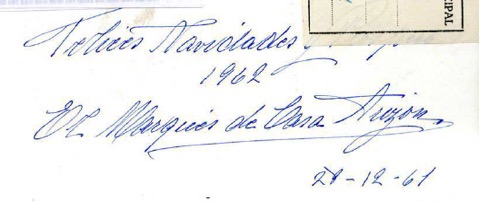 Felices Navidades y
1962
El Marqués de Casa Arizón
21-12-61
CIPAL